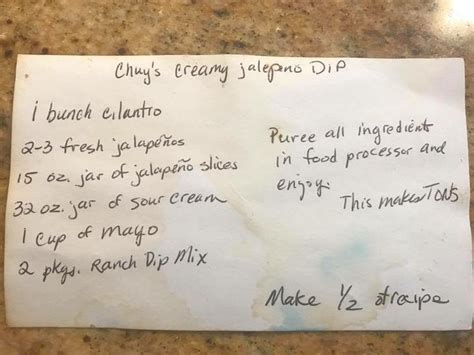 Chuy's creamy jalepeño Dip
1 bunch cilantro
2-3 fresh jalapeños
15 oz. jar of jalapeño slices
32 oz. jar of sour cream
1 cup of mayo
2 pkgs. Ranch Dip Mix
Puree all ingredients
in food processor and
enjoy.
This makes TONS
Make 1/2